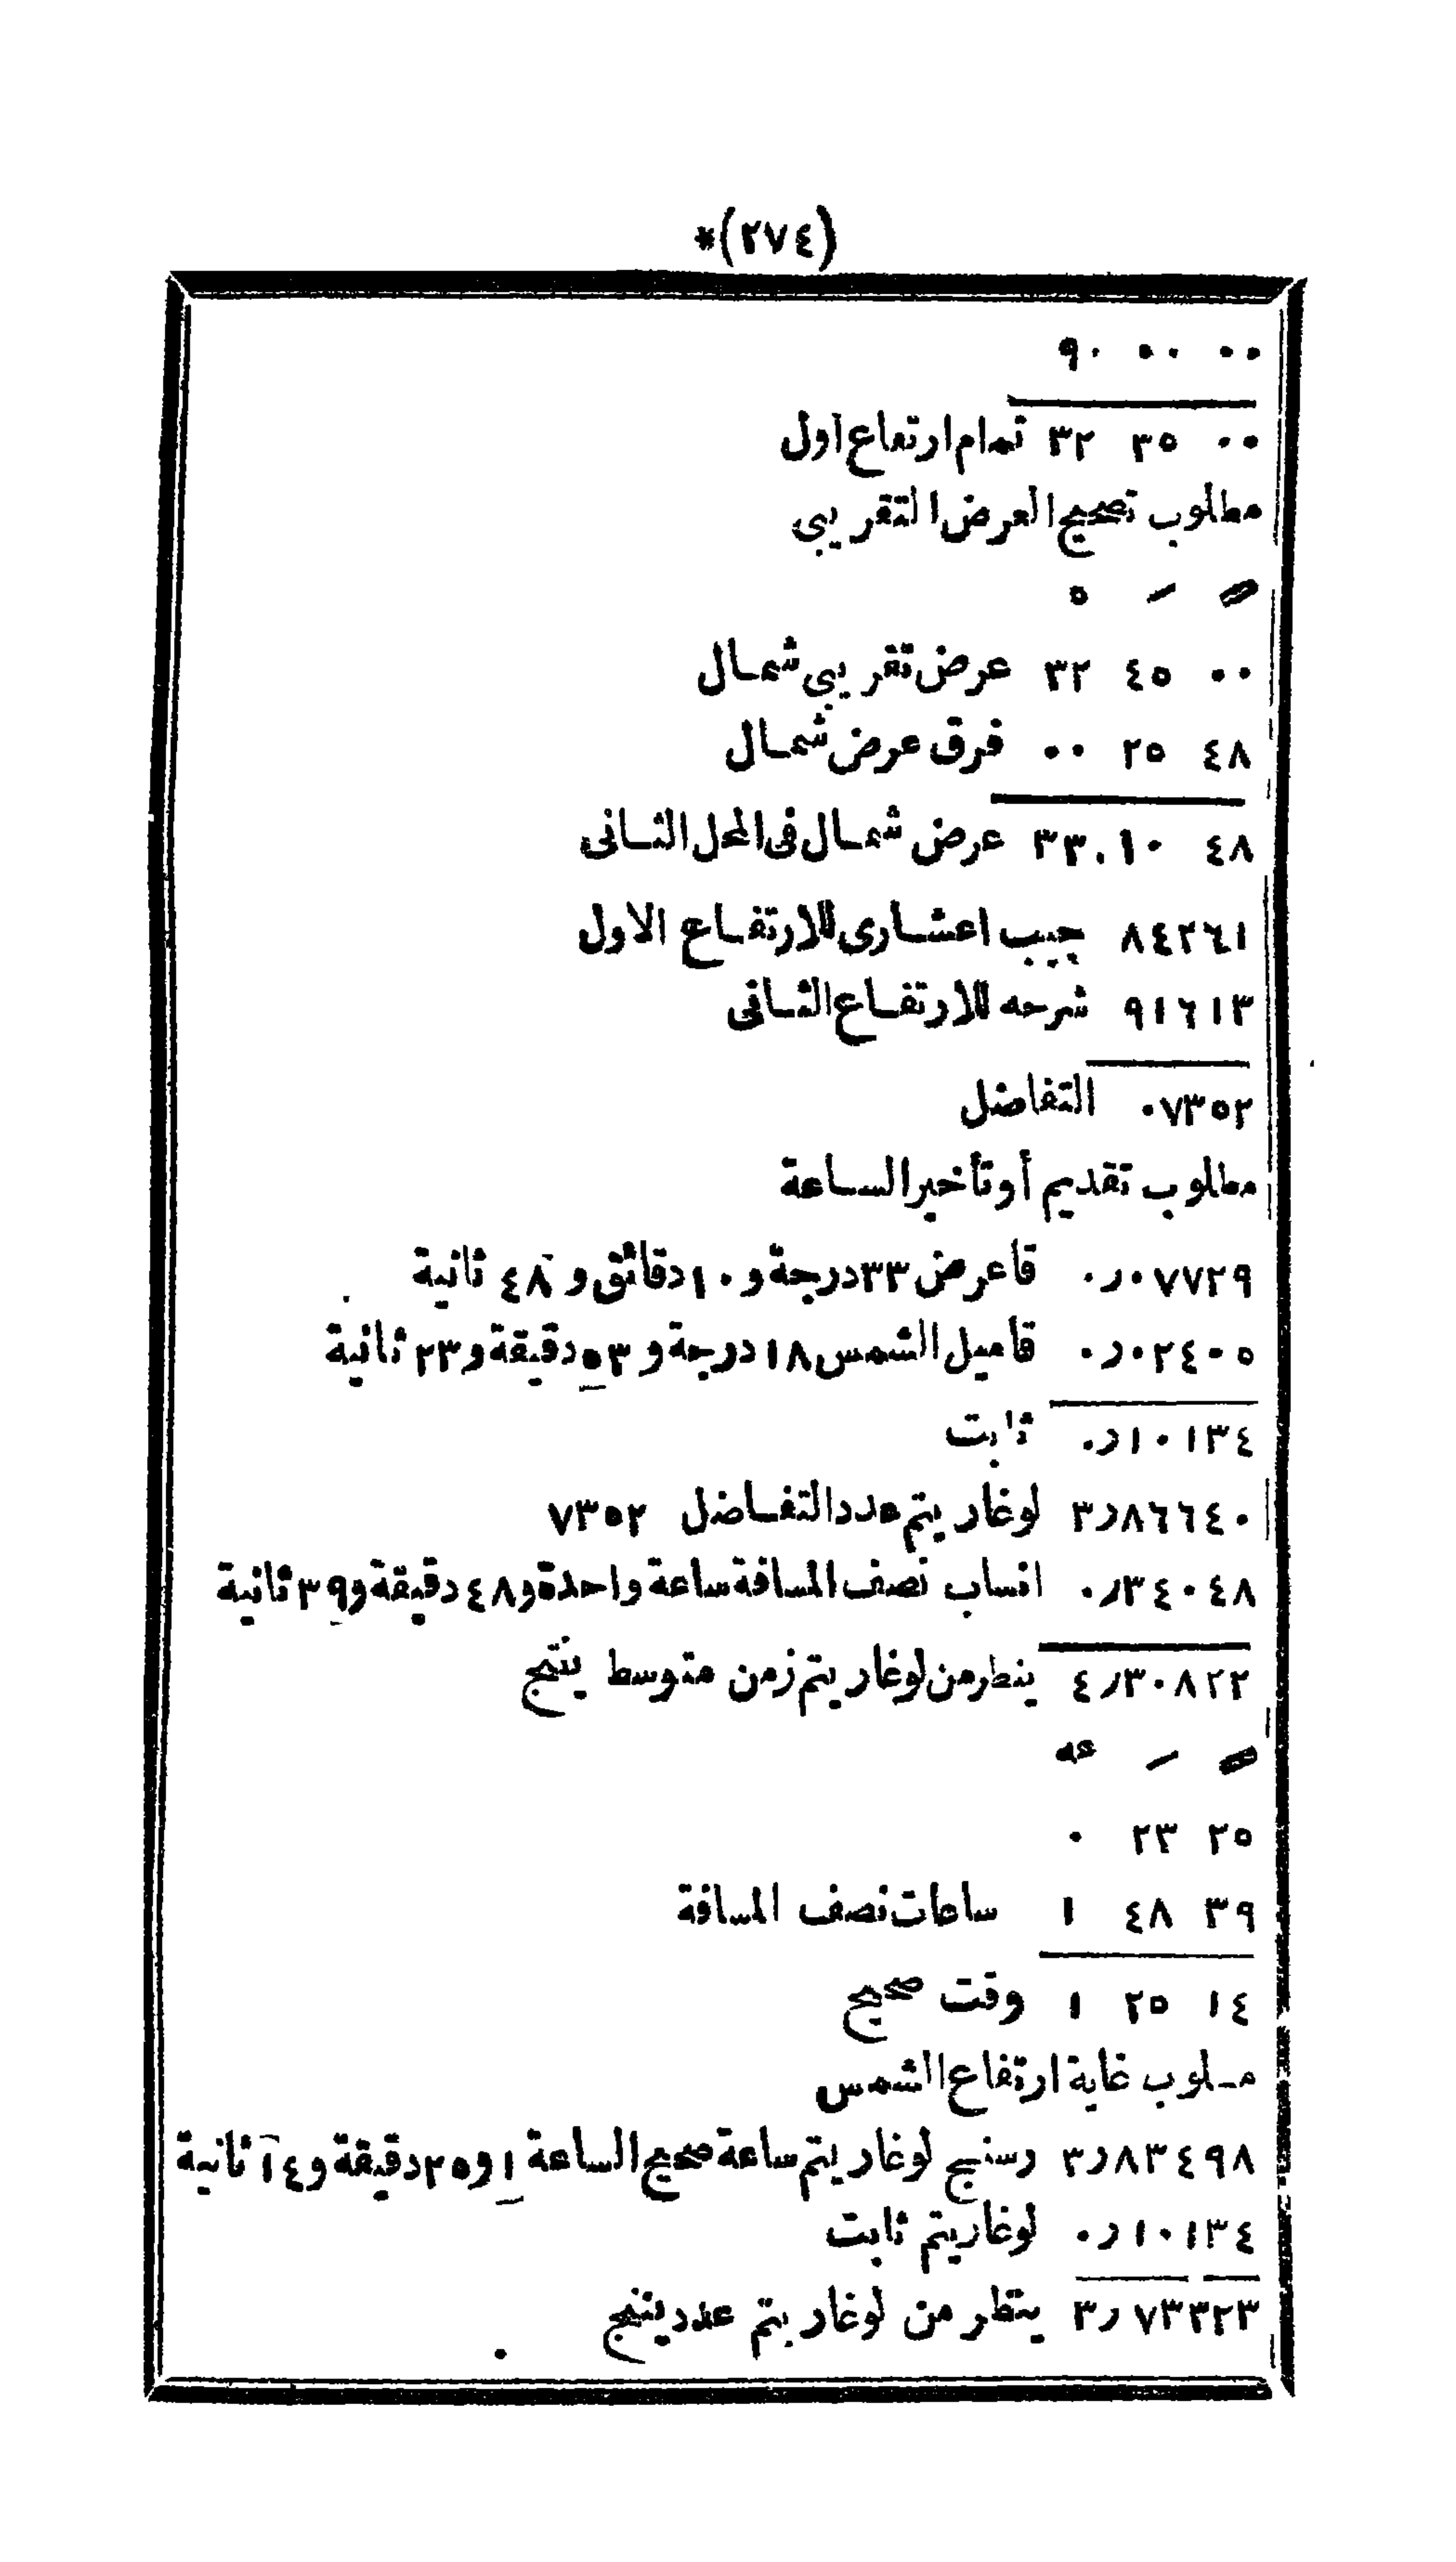 (٢٧٤)*
٩٠ ٠٠ ٠٠
٣٢ ٣٥ ٠٠ تمام ارتفاع اول
مطلوب تصحيح العرض التقريبى
٥ ـَ ـً
٣٢ ٤٥ ٠٠ عرض تقريبى شمال
٠٠ ٢٥ ٤٨ فرق عرض شمال
٣٣٠١٠ ٤٨ عرض شمال فى المحل الثانى
٨٤٢٦١ جيب اعشارى للارتفاع الاول
٩١٦١٣ شرحه للارتفاع الثانى
٠٧٣٥٢ التفاضل
مطلوب تقديم أو تأخير الساعة
٠ر٠٧٧٢٩ قاعرض ٣٣ درجة و ١٠ دقائق و ٤٨ ثانية
٠ر٠٢٤٠٥ قاميل الشمس ١٨ درجة و ٥٣ دقيقة و ٢٣ ثانية
٠ر١٠١٣٤ ثابت
٣ر٨٦٦٤٠ لوغاريتم عدد التفاضل ٧٣٥٢
٠ر٣٤٠٤٨ انساب نصف المسافة ساعة واحدة و ٤٨ دقيقة و ٣٩ ثانية
٤ر٣٠٨٢٢ ينظر من لوغاريتم زمن متوسط ينتج
عه ـَ ـً
٠ ٢٣ ٢٥
١ ٤٨ ٣٩ ساعات نصف المسافة
١ ٢٥ ١٤ وقت صحيح
مـلوب غاية ارتفاع الشمس
٣ر٨٣٤٩٨ رسنج لوغاريتم ساعة صحيح الساعة ١ و ٢٥ دقيقة و ١٤ ثانية
٠ر١٠١٣٤ لوغاريتم ثابت
٣ر٧٣٣٢٣ ينظر من لوغاريتم عدد ينتج